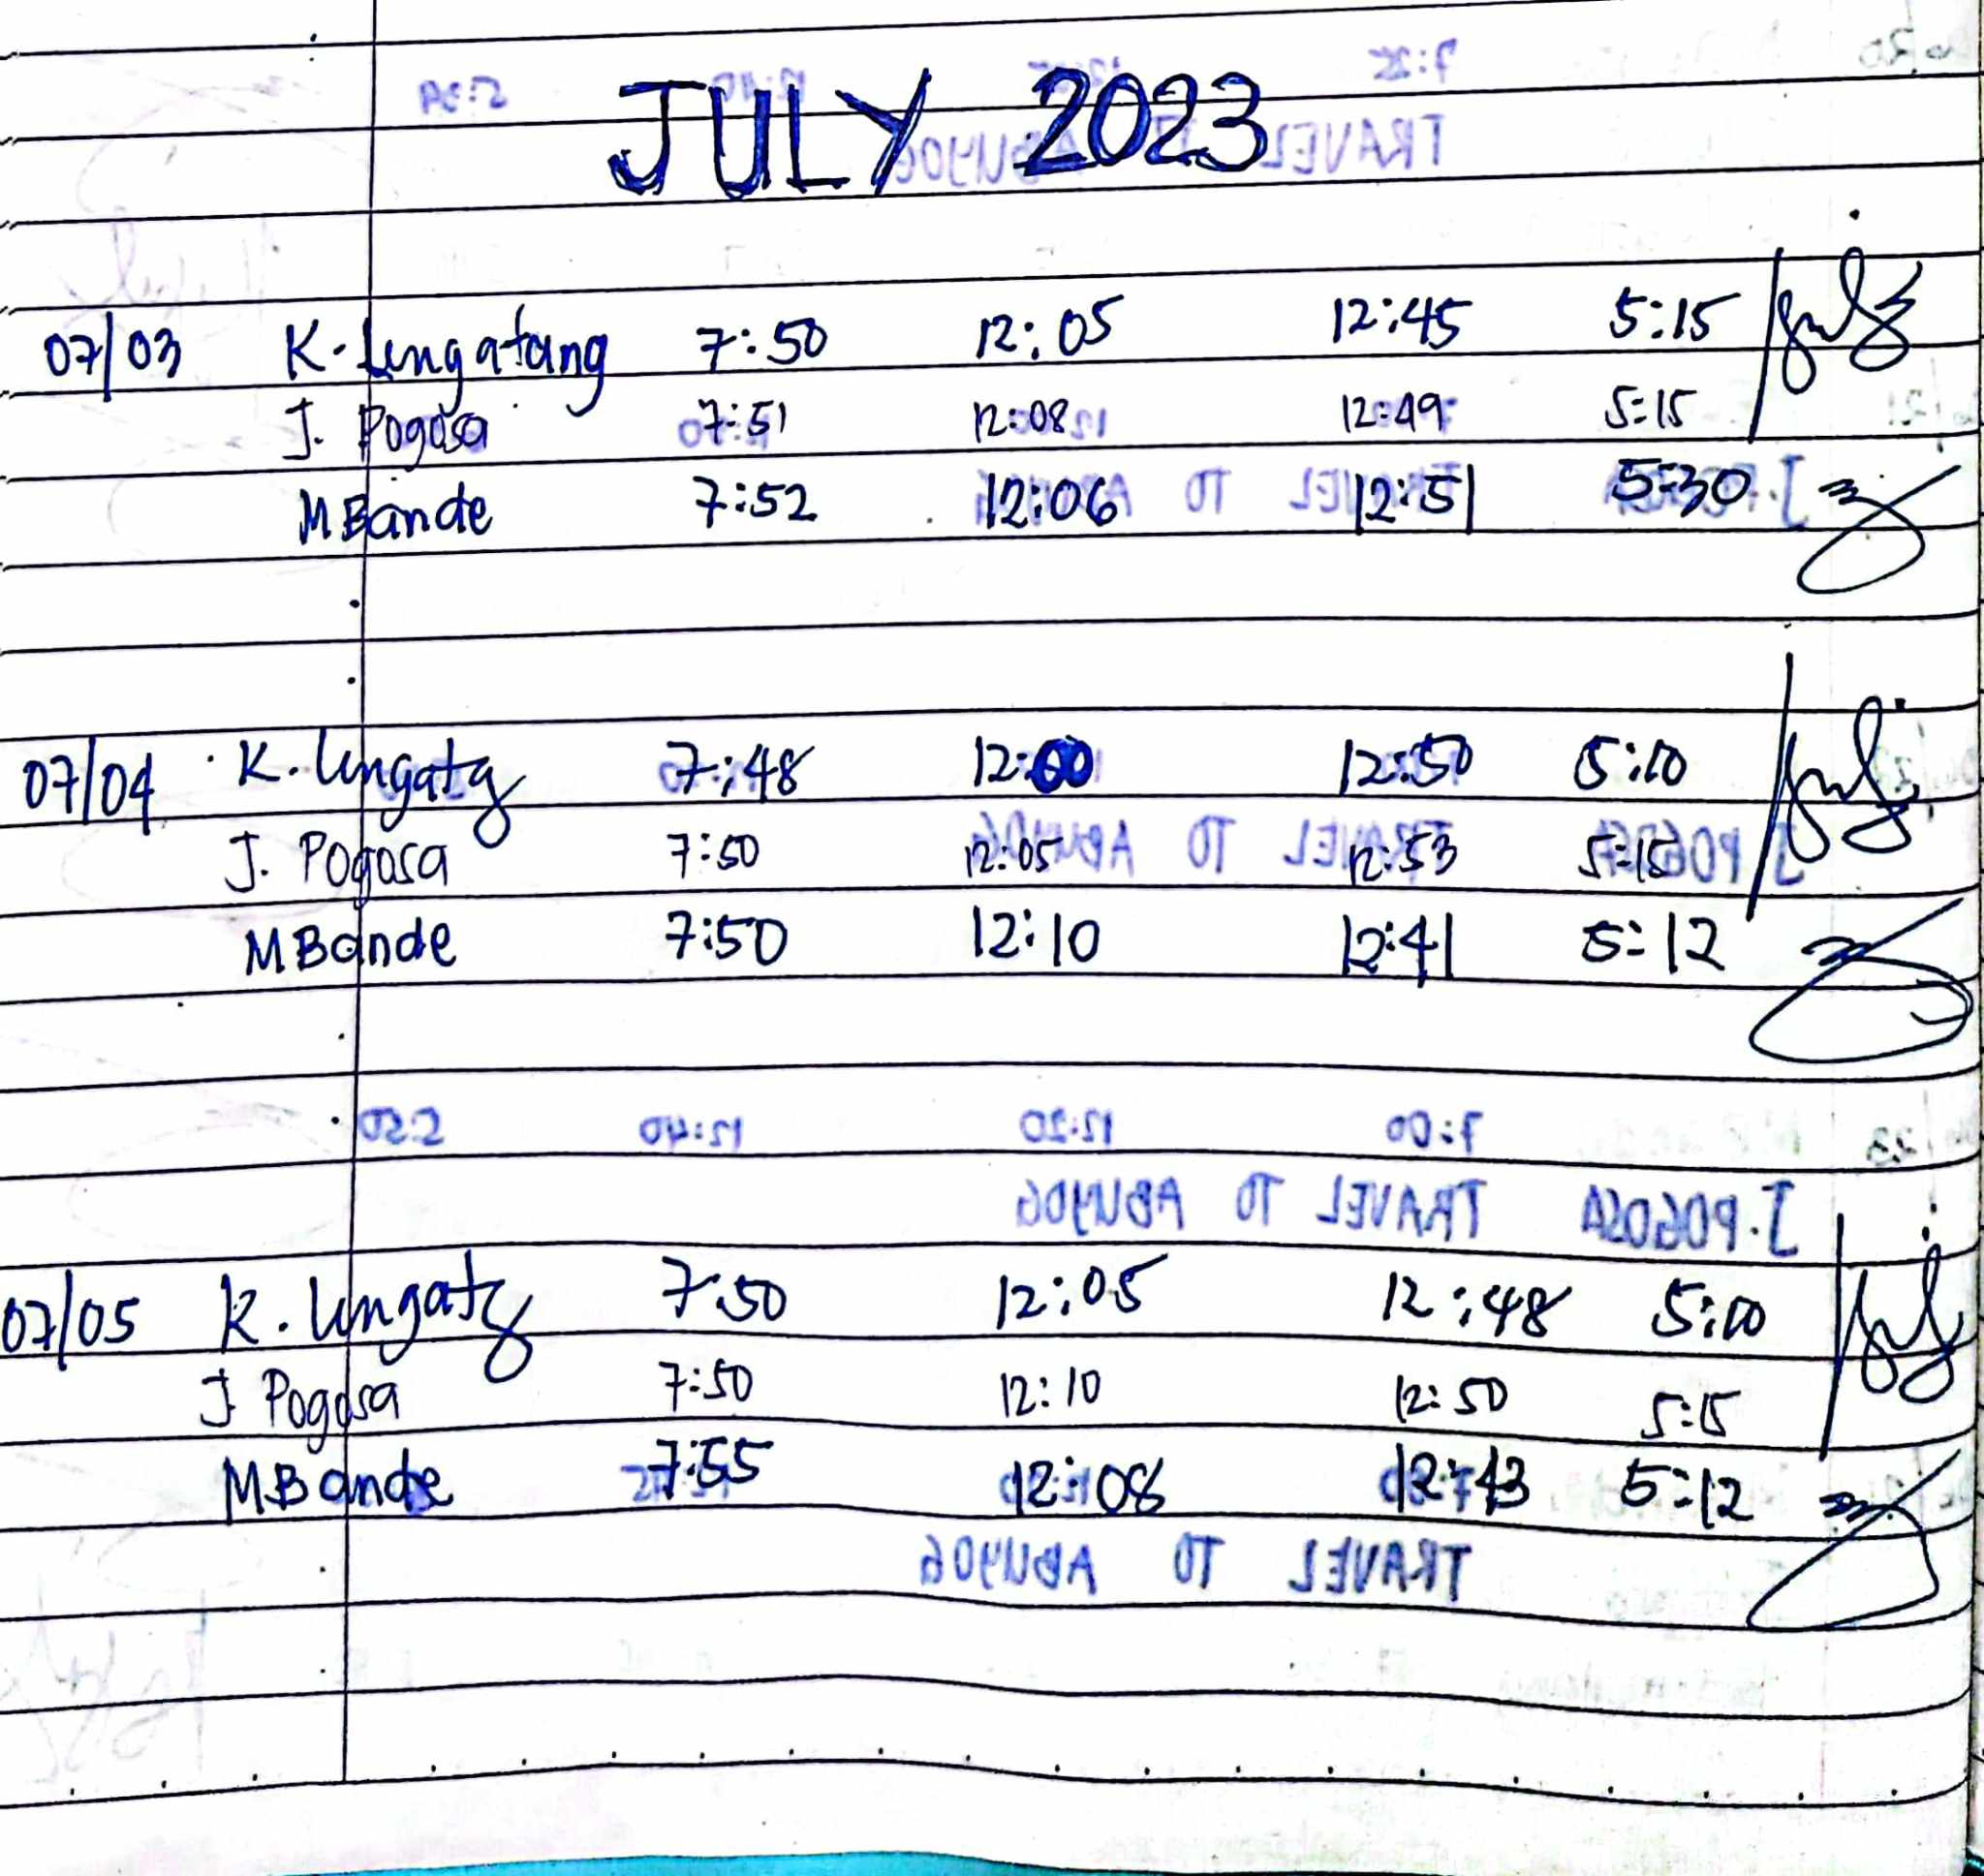 JULY 2023
07/03 K. Lungatang 7:50 12:05 12:45 5:15
J. Pogosa 7:51 12:08 12:49 5:15
MBande 7:52 12:06 12:51 5:30
07/04 K. 7:48 12:00 12:50 5:10
J. Pogosa 7:50 12:05 12:53 5:15
MBande 7:50 12:10 12:41 5:12
07/05 K. 7:50 12:05 12:48 5:10
J Pogosa 7:50 12:10 12:50 5:15
MBande 7:55 12:08 12:43 5:12